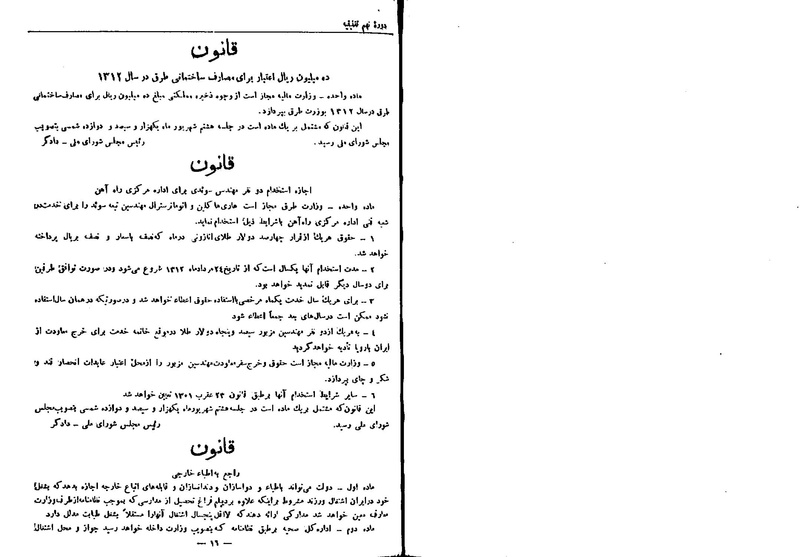 دورهٔ نهم تقنینیه
قانون
ده میلیون ریال اعتبار برای مصارف ساختمانی طرق در سال ۱۳۱۲
ماده واحده – وزارت مالیه مجاز است از وجوه ذخیره مملکتی مبلغ ده میلیون ریال برای مصارف ساختمانی
طرق درسال ۱۳۱۲ بوزرت طرق بپردازد.
این قانون که مشتمل بر یك ماده است در جلسه هشتم شهریور ماه یکهزار و سیصد و دوازده شمسی بتصویب
مجلس شورای ملی رسید. رئیس مجلس شورای ملی – دادگر
قانون
اجازه استخدام دو نفر مهندس سوئدی برای اداره مرکزی راه آهن
ماده واحده – وزارت طرق مجاز است و مهندسین تبعه سوئد را برای خدمت در
فنی اداره مرکزی راه آهن باشرایط ذیل استخدام نماید.
۱ – حقوق هریك ازقرار چهارصد دولار طلای اتازونی درماه که نصف باسعار و نصف بریال پرداخته
خواهد شد.
۲ – مدت استخدام آنها یکسال است که از تاریخ ۲۴ مردادماه ۱۳۱۲ شروع می شود ودر صورت توافق طرفین
برای دوسال دیگر قابل تمدید خواهد بود.
۳ – برای هریك سال خدمت یکماه مرخصی بااستفاده حقوق اعطاء خواهد شد و درصورتیکه درهمان سال استفاده
نشود ممکن است درسال‌های بعد جمعاً اعطاء شود
۴ – به هریك ازدو نفر مهندسین مزبور سیصد وپنجاه دولار طلا درموقع خاتمه خدمت برای خرج معاودت از
ایران باروپا تأدیه خواهد گردید
۵ – وزارت مالیه مجاز است حقوق وخرج سفر معاودت مهندسین مزبور را ازمحل اعتبار عایدات انحصار قند و
شکر و چای بپردازد.
۶ – سایر شرایط استخدام آنها برطبق قانون ۲۳ عقرب ۱۳۰۱ تعیین خواهد شد
این قانون که مشتمل بریك ماده است در جلسه هشتم شهریورماه یکهزار و سیصد و دوازده شمسی بتصویب مجلس
شورای ملی رسید. رئیس مجلس شورای ملی – دادگر
قانون
راجع به اطباء خارجی
ماده اول – دولت می‌تواند باطباء و دواسازان و دندانسازان و قابله‌های اتباع خارجه اجازه بدهد که بشغل
خود درایران اشتغال ورزند مشروط براینکه علاوه بردیپلم فراغ تحصیل از مدارسی که بموجب نظامنامه ازطرف وزارت
معارف معین خواهد شد مدارکی ارائه دهند که لااقل پنجسال اشتغال آنهارا مستقلاً بشغل طبابت مدلل دارد
ماده دوم – اداره کل صحیه برطبق نظامنامه که بتصویب وزارت داخله خواهد رسید جواز و محل اشتغال
– ۱۶ –